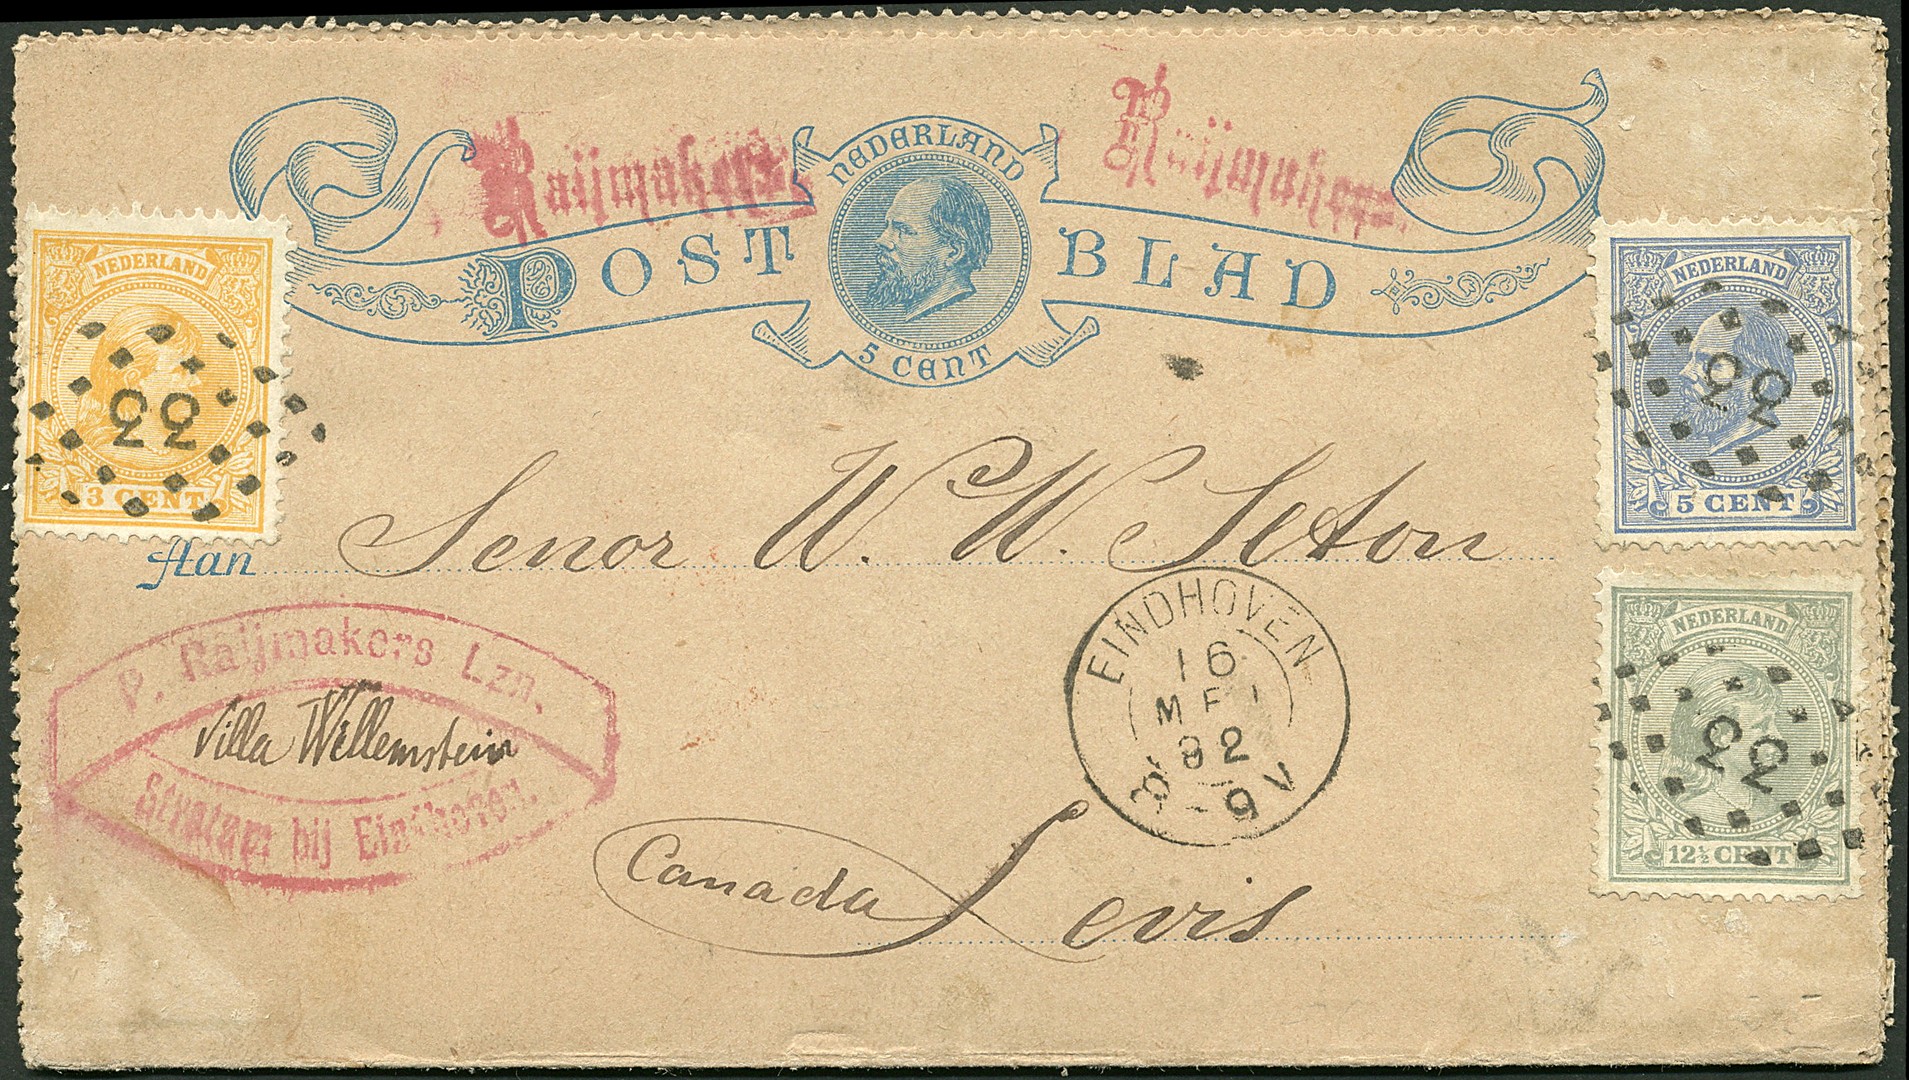 Raijmakers
Raijmakers
NEDERLAND
POSTBLAD
5 CENT
NEDERLAND
33
3 CENT
NEDERLAND
33
5 CENT
Aan Senor W. W. Seton
NEDERLAND
33
12½ CENT
EINDHOVEN
16
MEI
92
8-9V
P. Raijmakers Lzn.
Villa Willemstein
Stratum bij Eindhoven.
Canada
Levis